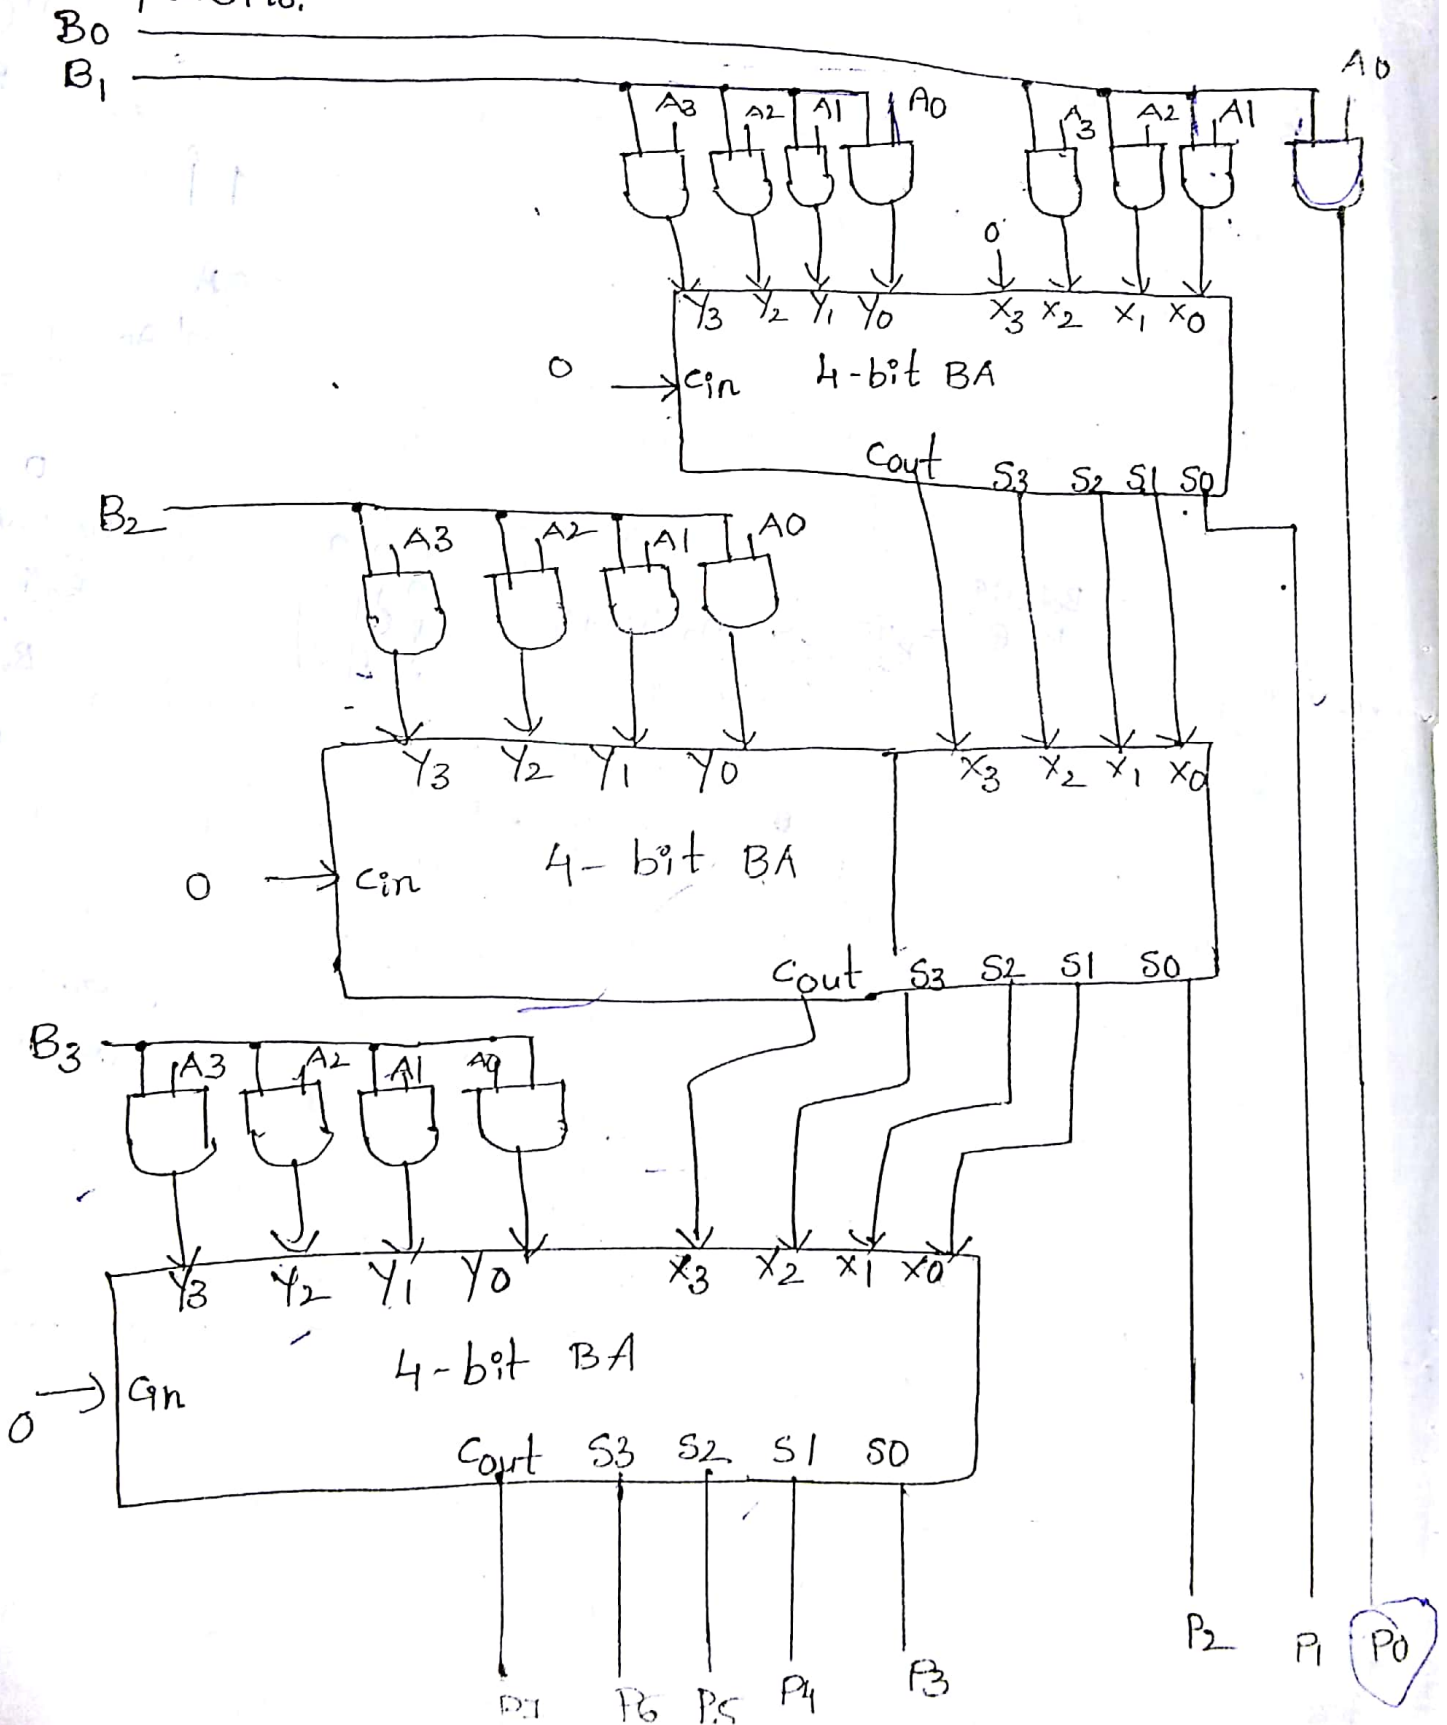 B0
B1
A0
A3 A2 A1 A0
A3 A2 A1
0
Y3 Y2 Y1 Y0 X3 X2 X1 X0
0
Cin 4-bit BA
Cout S3 S2 S1 S0
B2
A3 A2 A1 A0
Y3 Y2 Y1 Y0 X3 X2 X1 X0
0 Cin 4-bit BA
Cout S3 S2 S1 S0
B3
A3 A2 A1 A0
Y3 Y2 Y1 Y0 X3 X2 X1 X0
4-bit BA
0 Cin
Cout S3 S2 S1 S0
P7 P6 P5 P4 P3 P2 P1 P0